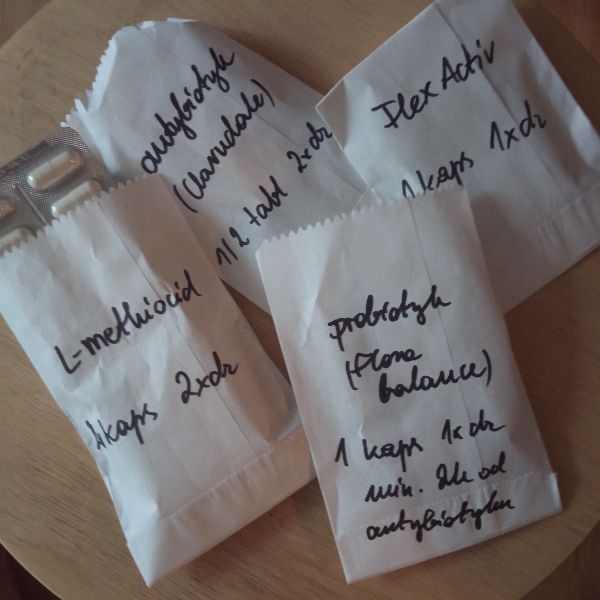 antybiotyk
(Clavudale)
1/2 tabl 2xdz
Flex Activ
1 kaps 1xdz
L-methiocid
kaps 2xdz
probiotyk
(Flora
balance)
1 kaps 1xdz
min. 2h od
antybiotyku